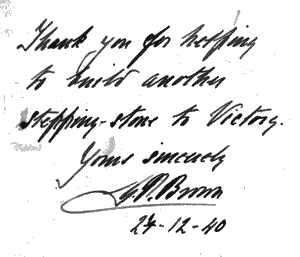 Thank you for helping
to build another
stepping-stone to Victory.
Yours sincerely
Brown
27-12-40